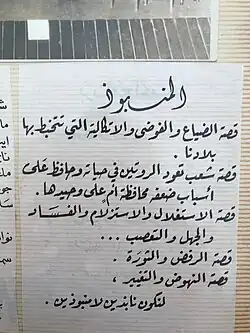 المنبوذ
قصة الضياع والفوضى والاتكالية التي تتخبط بها
بلادنا .
قصة شعب تعود الروتين في حياته وحافظ على
أسباب ضعفه محافظة الأم على وحيدها .
قصة الاستغلال والاستزلام والفساد
والجهل والتعصب ...
قصة الرفض والثورة .
قصة النهوض والتغيير ،
لنكون نابذين لا منبوذين .